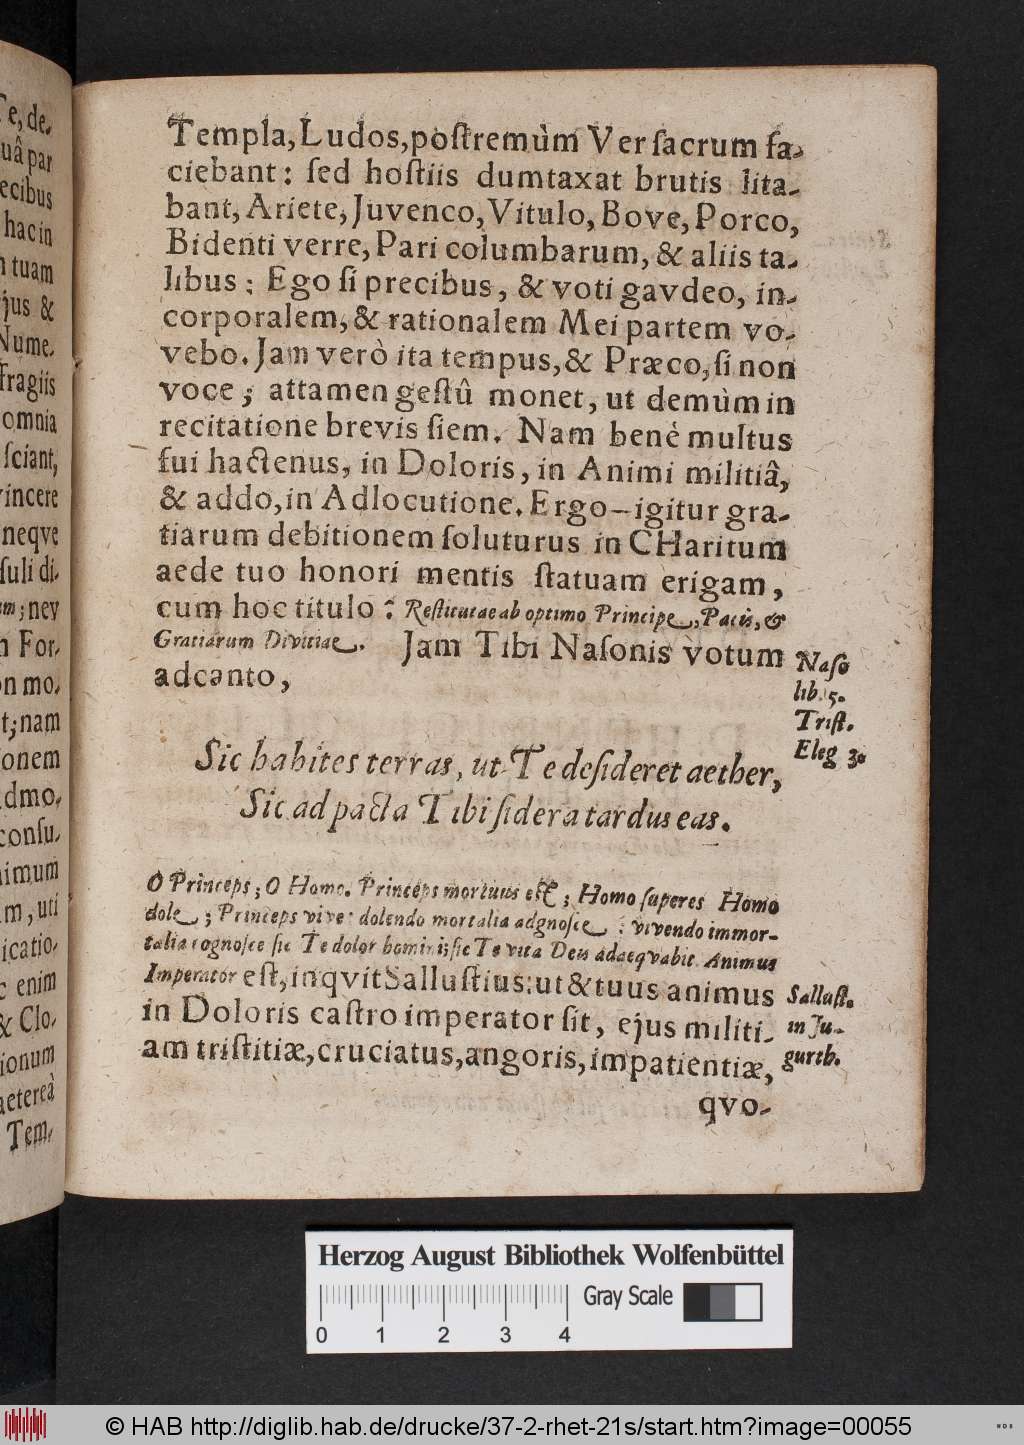 Templa, Ludos, postremùm Ver sacrum fa-
ciebant: sed hostiis dumtaxat brutis lita-
bant, Ariete, Juvenco, Vitulo, Bove, Porco,
Bidenti verre, Pari columbarum, & aliis ta-
libus: Ego si precibus, & voti gavdeo, in-
corporalem, & rationalem Mei partem vo-
vebo. Jam verò ita tempus, & Præco, si non
voce; attamen gestû monet, ut demùm in
recitatione brevis siem. Nam benè multus
fui hactenus, in Doloris, in Animi militiâ,
& addo, in Adlocutione. Ergo-igitur gra-
tiarum debitionem soluturus in CHaritum
aede tuo honori mentis statuam erigam,
cum hoc titulo: Restitutae ab optimo Principe, Pacis, &
Gratiarum Divitiae. Jam Tibi Nasonis votum
adcanto,
Naso
lib. 5.
Trist.
Eleg 3.
Sic habites terras, ut Te desideret aether,
Sic ad pacta Tibi sidera tardus eas.
O Princeps; O Homo. Princeps mortuus est; Homo superes Homo
dole; Princeps vive: dolendo mortalia adgnosce: vivendo immor-
talia cognosce sic Te dolor hominis sic Te vita Deis adaeqvabit. Animus
Imperator est, inqvit Sallustius: ut & tuus animus
in Doloris castro imperator sit, ejus militi-
am tristitiæ, cruciatus, angoris, impatientiæ,
Sallust.
in Ju-
gurth.
qvo-
Te, de-
uâ par
ecibus
hac in
tuam
jus &
Nume-
fragiis
omnia
sciant,
vincere
neqve
suli di-
m; nev
n For-
on mo-
t; nam
onem
dmo-
consu-
nimum
m, uti
icatio-
c enim
& Clo-
ionum
aetereà
Tem-
Herzog August Bibliothek Wolfenbüttel
Gray Scale
0 1 2 3 4
© HAB http://diglib.hab.de/drucke/37-2-rhet-21s/start.htm?image=00055